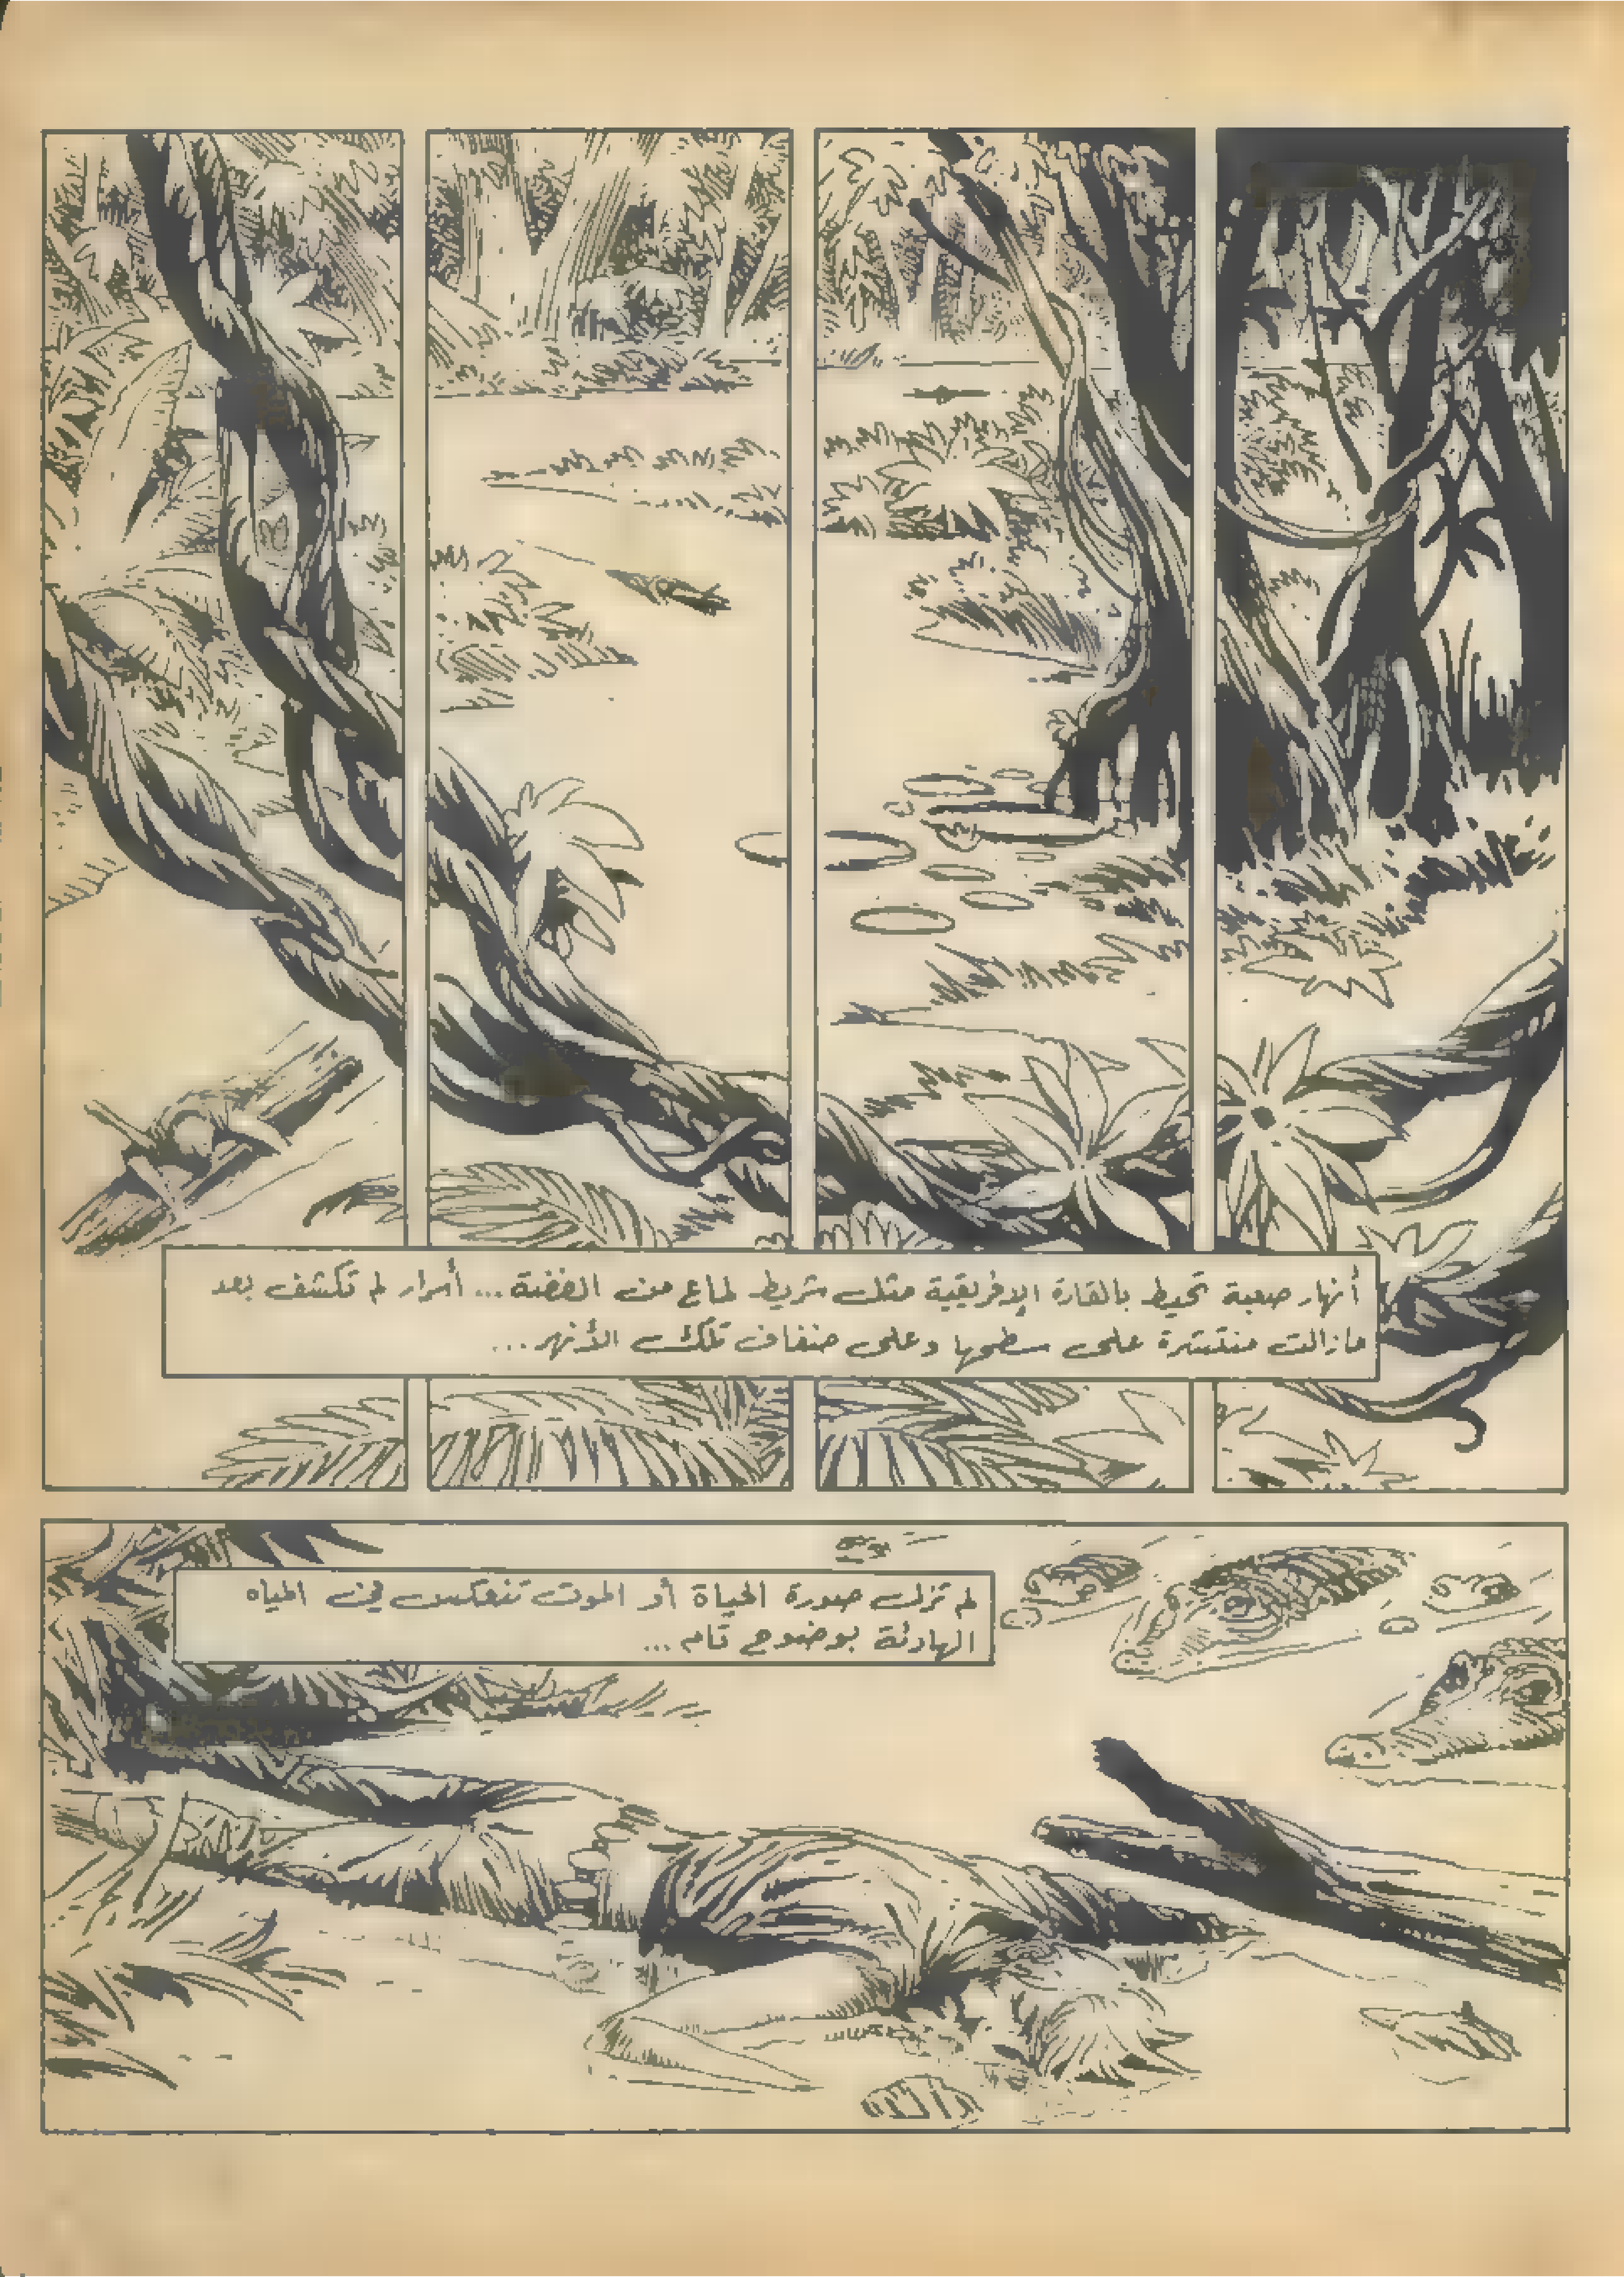 أنهار صعبة تحيط بالقارة الإفريقية مثل شريط لماع من الفضة... أسرار لم تكشف بعد
مازالت منتشرة على سطحها وعلى ضفاف تلك الأنهر...
لم تزل صورة الحياة أو الموت تنعكس في المياه
الهادئة بوضوح تام...